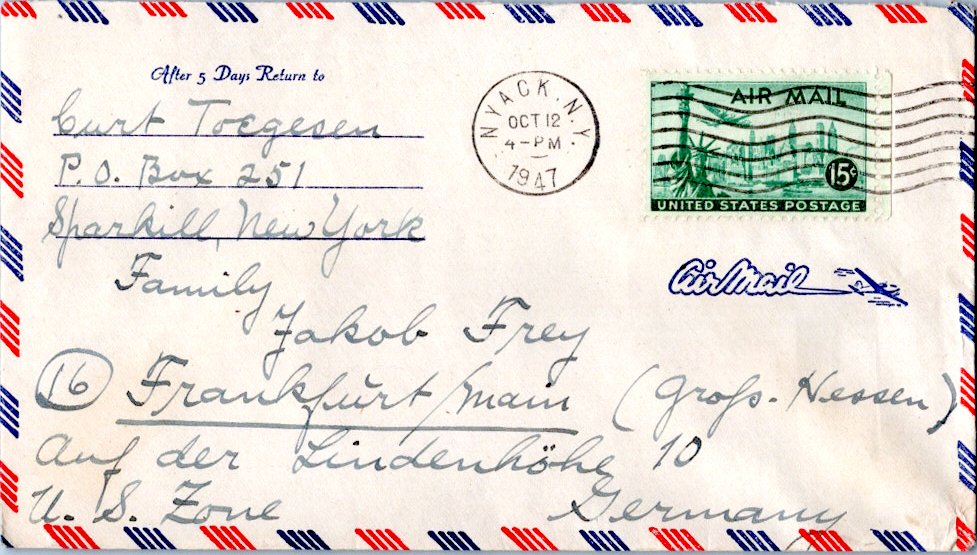 After 5 Days Return to
Curt Toegesen
P.O. Box 251
Sparkill, New York
NYACK, N.Y.
OCT 12
4-PM
1947
AIR MAIL
15¢
UNITED STATES POSTAGE
Air Mail
Family
Jakob Frey
16 Frankfurt/Main (Groß-Hessen)
Auf der Lindenhöhe 10
U. S. Zone Germany